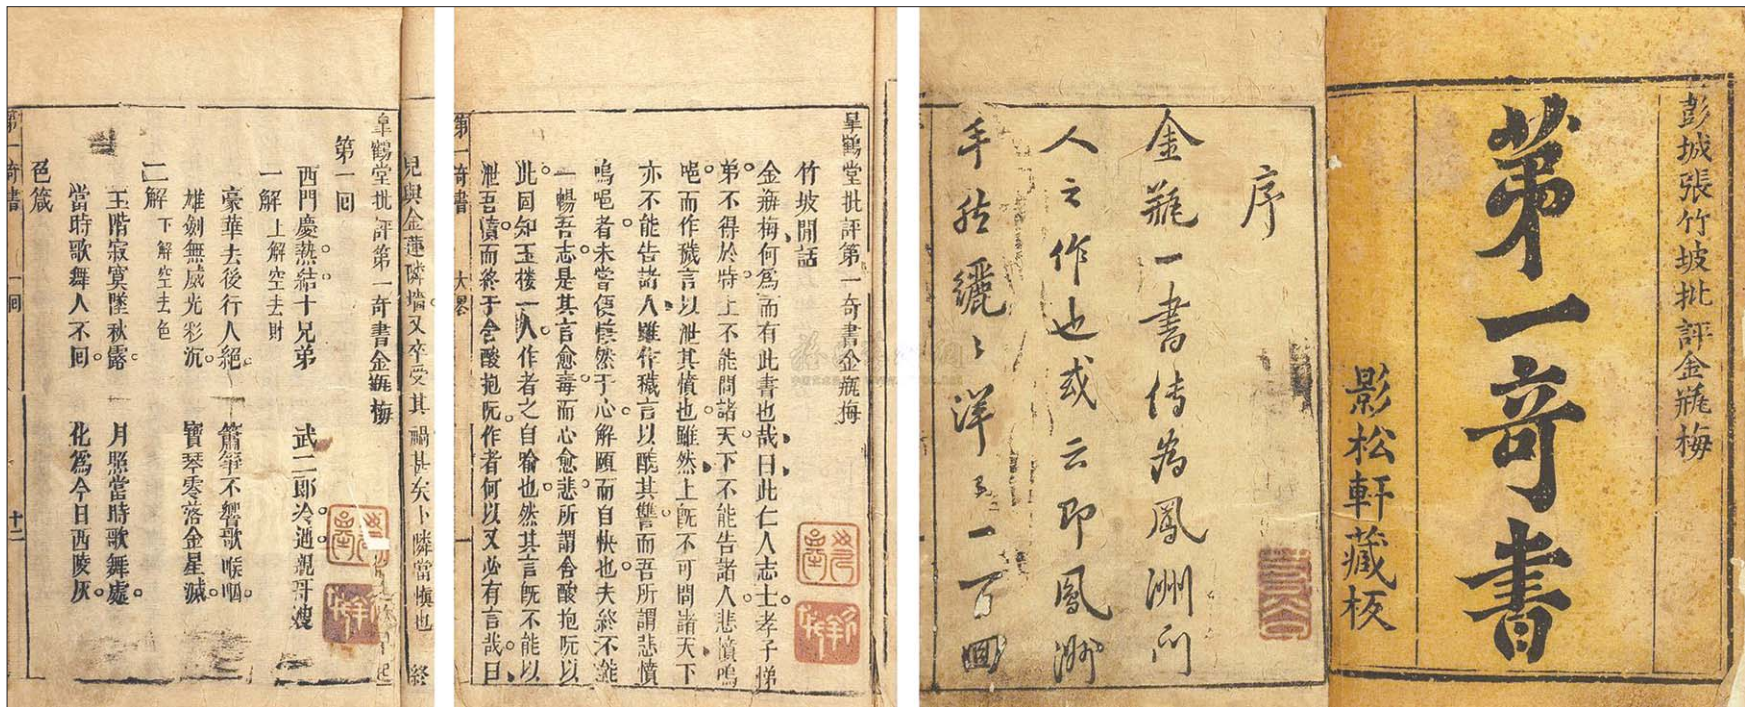 彭城張竹坡批評金瓶梅
第一奇書
影松軒藏板
序
金瓶一書傳為鳳洲門
人之作也或云即鳳洲
手然纚纚洋洋一百回
臯鶴堂批評第一奇書金瓶梅
竹坡閒話
金瓶梅何爲而有此書也哉曰此仁人志士孝子悌
弟不得於時上不能問諸天下不能告諸人悲憤嗚
唈而作穢言以泄其憤也雖然上既不可問諸天下
亦不能告諸人雖作穢言以醜其讐而吾所謂悲憤
嗚唈者未嘗便慊然于心解頤而自快也夫終不能
一暢吾志是其言愈毒而心愈悲所謂含酸抱阮以
此固知玉樓一人作者之自喻也然其言既不能以
泄吾憤而終于含酸抱阮作者何以又必有言哉曰
第一奇書
大畧
一
兒與金蓮隣墻又卒受其禍甚矣卜隣當愼也
終
臯鶴堂批評第一奇書金瓶梅
第一回
西門慶熱結十兄弟 武二郎冷遇親哥嫂
一解 上解空去財
豪華去後行人絕 簫箏不響歌喉咽
雄劍無威光彩沉 寶琴零落金星滅
二解 下解空去色
玉階寂寞墜秋露 月照當時歌舞處
當時歌舞人不回 化爲今日西陵灰
色箴
第一奇書
一回
十二